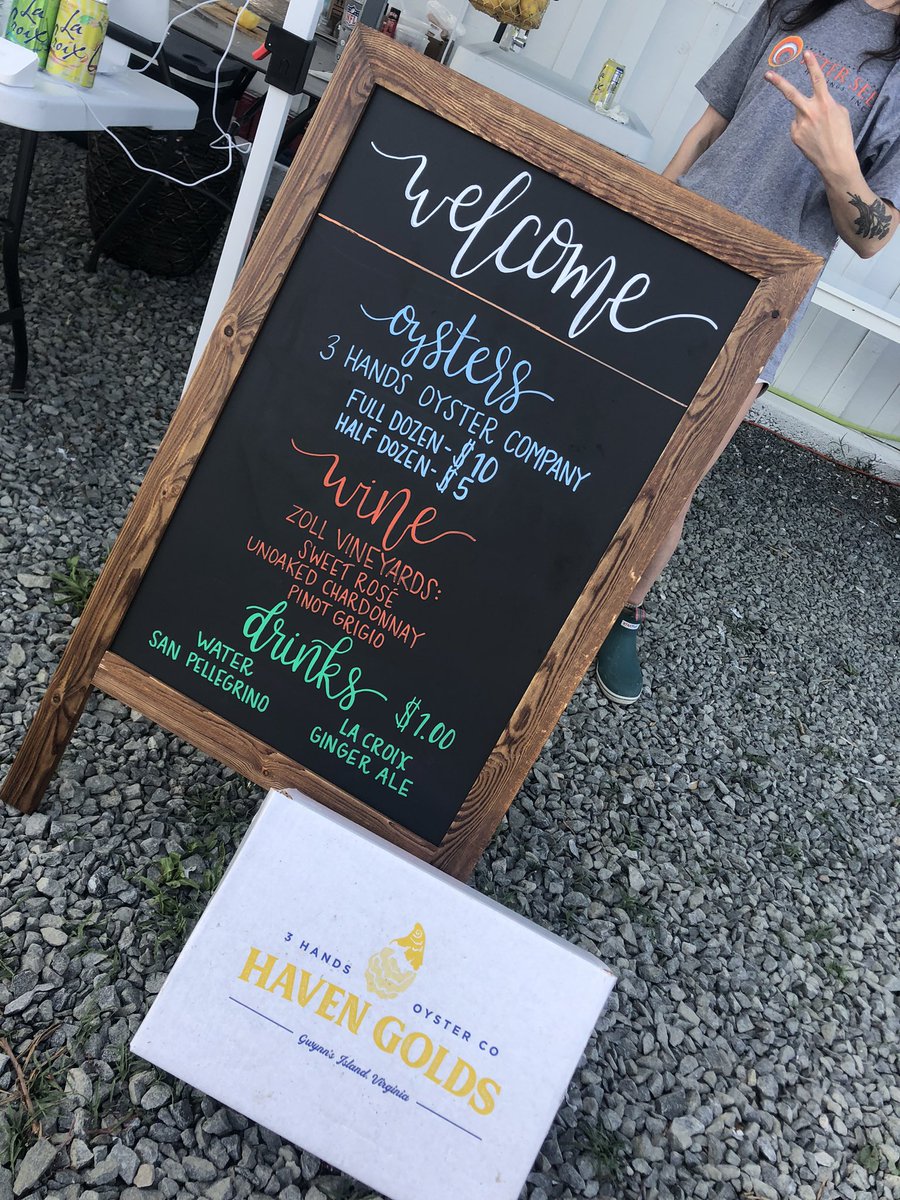 La
Croix
La
Croix
welcome
oysters
3 HANDS OYSTER COMPANY
FULL DOZEN- $10
HALF DOZEN- $5
wine
ZOLL VINEYARDS:
SWEET ROSÉ
UNOAKED CHARDONNAY
PINOT GRIGIO
drinks $1.00
WATER
SAN PELLEGRINO
LA CROIX
GINGER ALE
3 HANDS
OYSTER CO
HAVEN GOLDS
Gwynn's Island, Virginia